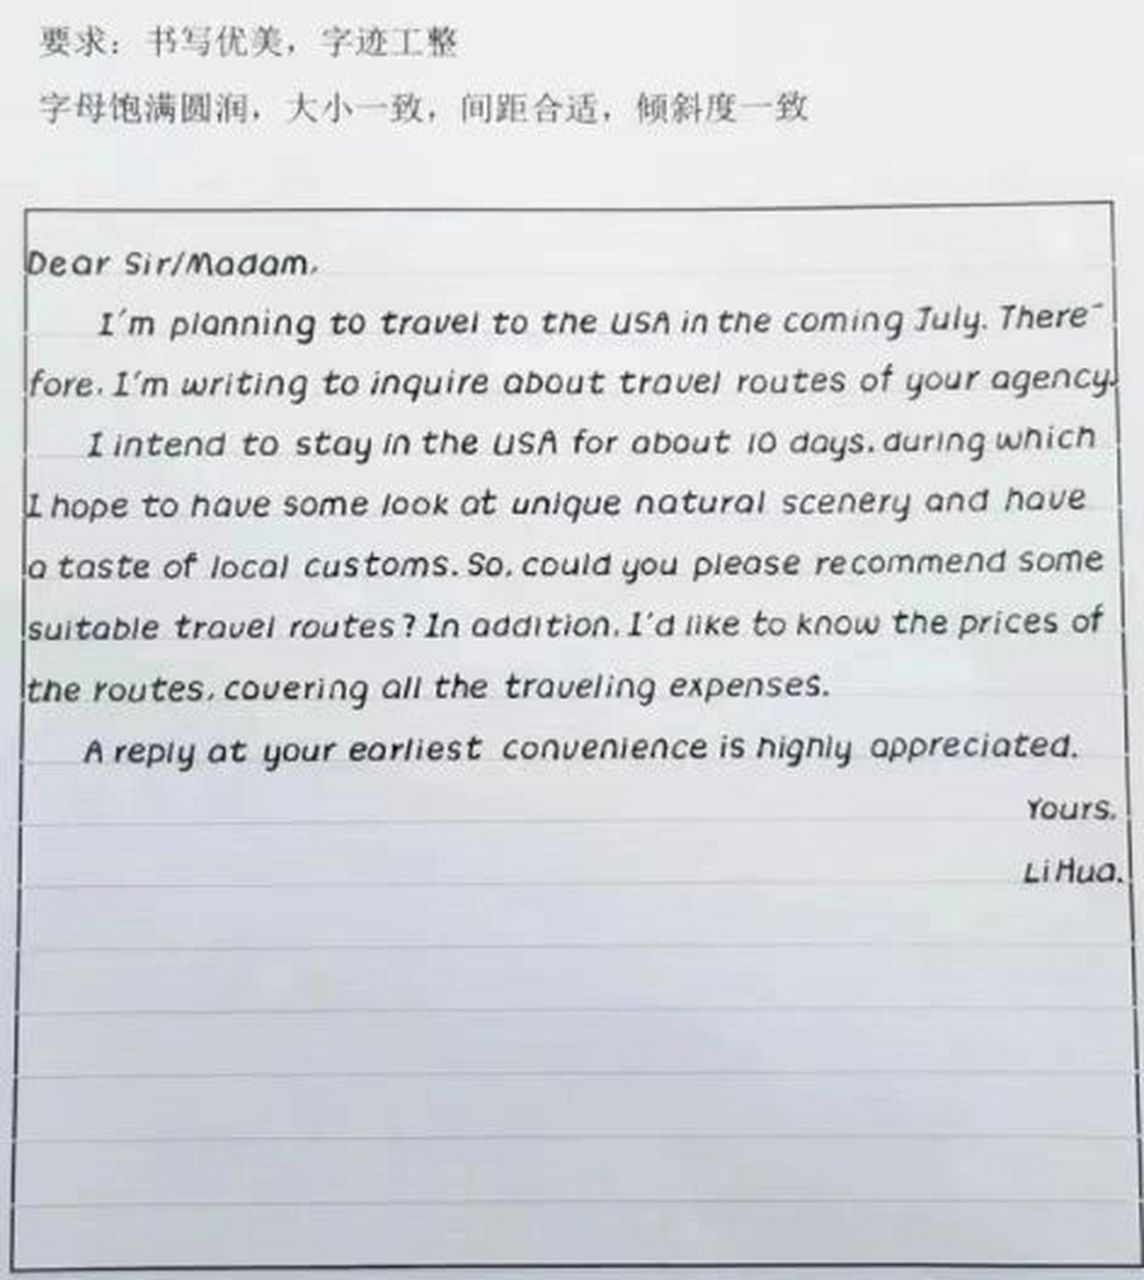 要求：书写优美，字迹工整
字母饱满圆润，大小一致，间距合适，倾斜度一致
Dear Sir/Madam,
I'm planning to travel to the USA in the coming July. There-
fore, I'm writing to inquire about travel routes of your agency.
I intend to stay in the USA for about 10 days, during which
I hope to have some look at unique natural scenery and have
a taste of local customs. So, could you please recommend some
suitable travel routes? In addition, I'd like to know the prices of
the routes, covering all the traveling expenses.
A reply at your earliest convenience is highly appreciated.
Yours,
Li Hua.